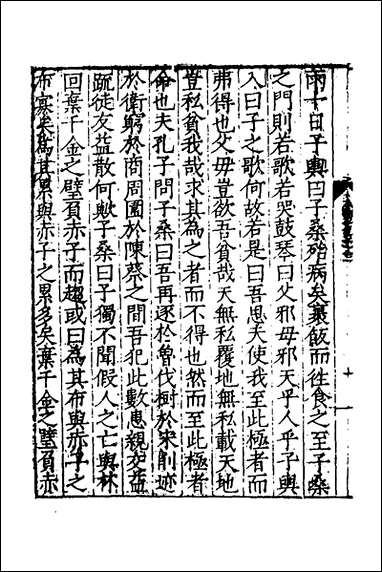 雨十日子輿曰子桑殆病矣裹飯而往食之至子桑
之門則若歌若哭鼓琴曰父邪母邪天乎人乎子輿
入曰子之歌何故若是曰吾思夫使我至此極者而
弗得也父母豈欲吾貧哉天無私覆地無私載天地
豈私貧我哉求其為之者而不得也然而至此極者
命也夫孔子問子桑曰吾再逐於魯伐樹於宋削迹
於衛窮於商周圍於陳蔡之間吾犯此數患親交益
疏徒友益散何歟子桑曰子獨不聞假人之亡與林
回棄千金之璧負赤子而趨或曰為其布與赤子之
布寡矣為其累與赤子之累多矣棄千金之璧負赤